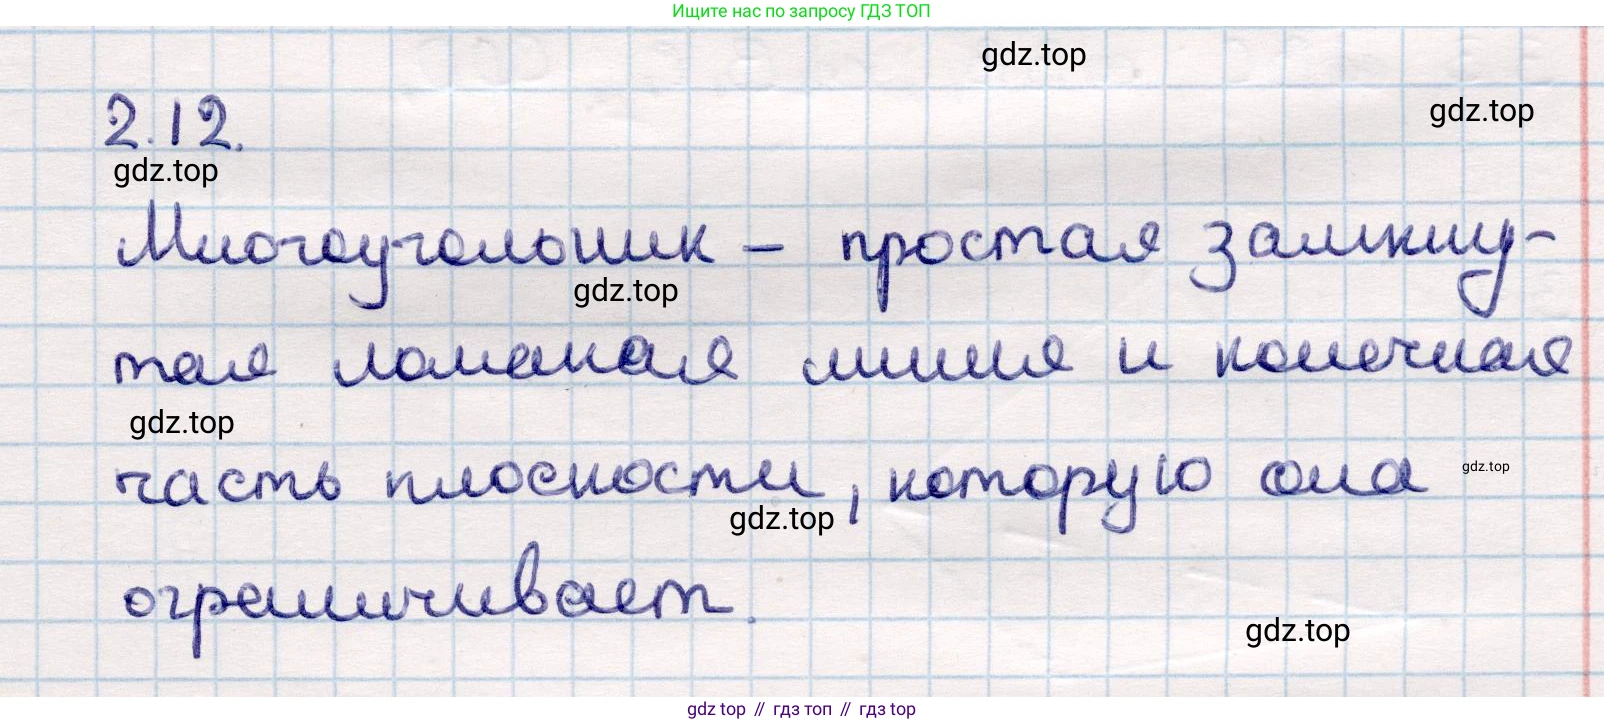 Ищите нас по запросу ГДЗ ТОП
gdz.top
gdz.top
2.12.
gdz.top
Многоугольник – простая замкну-
gdz.top
тая ломаная линия и конечная
gdz.top
часть плоскости, которую она
gdz.top
gdz.top
ограничивает.
gdz.top
gdz top // гдз топ // гдз top